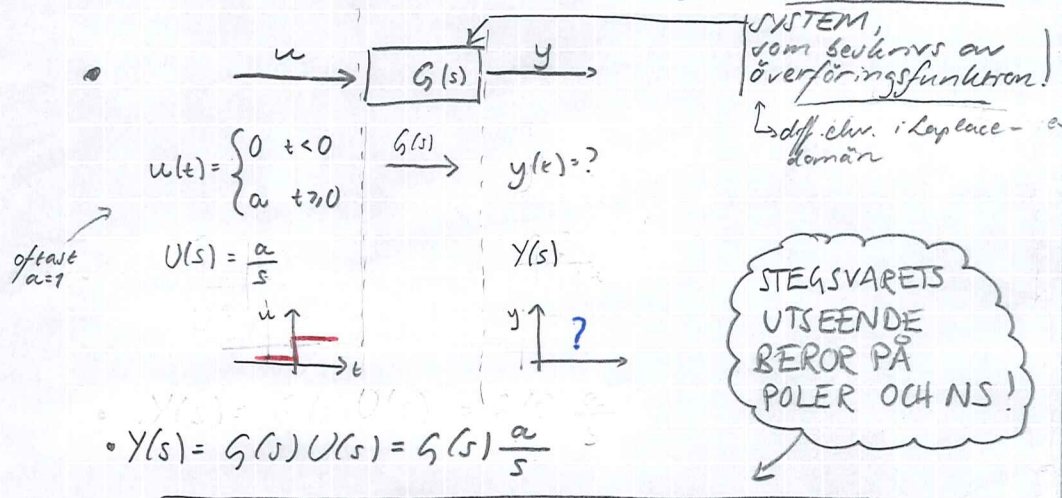 u
G(s)
y
SYSTEM,
som beskrivs av
överföringsfunktion!
↳ diff.ekv. i Laplace-
domän
u(t) = {0 t<0
a t≥0
G(s)
→
y(t)=?
oftast
a=1
U(s) = a/s
Y(s)
u
t
y
?
STEGSVARETS
UTSEENDE
BEROR PÅ
POLER OCH NS!
• Y(s) = G(s)U(s) = G(s) a/s